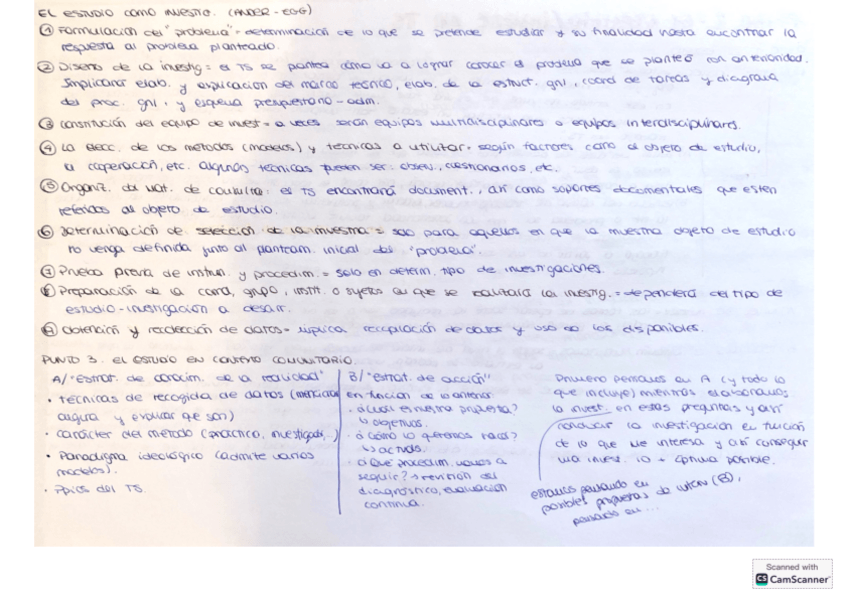 EL ESTUDIO COMO INVESTIG. (ANDER-EGG)
① Formulación del "problema" = determinación de lo que se pretende estudiar y su finalidad hasta encontrar la
respuesta al problema planteado.
② Diseño de la investig = el TS se plantea cómo va a lograr conocer el problema que se planteó con anterioridad.
Implicará elab. y explicación del marco teórico, elab. de la estruct. gnl, coord de tareas y diagrama
del proc. gnl, y esquema presupuestario-adm.
③ Constitución del equipo de invest = a veces serán equipos multidisciplinares o equipos interdisciplinares.
④ La elecc. de los métodos (modelos) y técnicas a utilizar = según factores como el objeto de estudio,
la cooperación, etc. Algunas técnicas pueden ser: observ, cuestionarios, etc.
⑤ Organiz. del mat. de consulta: el TS encontrará document., así como soportes documentales que estén
referidos al objeto de estudio.
⑥ Determinación de selección de la muestra = solo para aquellos en que la muestra objeto de estudio
no venga definida junto al planteam. inicial del "problema"
⑦ Prueba previa de instrum. y procedim. = solo en determ. tipo de investigaciones.
⑧ Preparación de la comd, grupo, instit. o sujetos en que se realizará la investig. = dependerá del tipo de
estudio-investigación a desarr.
⑨ Obtención y recolección de datos = implica recopilación de datos y uso de los disponibles.
PUNTO 3. EL ESTUDIO EN CONTEXTO COMUNITARIO.
A/ "Estrat. de conocim. de la realidad"
• Técnicas de recogida de datos (mencionar
alguna y explicar qué son)
• Carácter del método (práctico, investigati..)
• Paradigma ideológico (admite varios
modelos).
• Ppios del TS.
B/ "Estrat. de acción"
en función de lo anterior
· ¿Cuál es nuestra propuesta?
↳ objetivos.
· ¿Cómo lo queremos hacer?
↳ activids.
· ¿Qué procedim. vamos a
seguir? → revisión del
diagnóstico, evaluación
continua.
Primero pensamos en A (y todo lo
que incluye) mientras elaboramos
la invest. en estas preguntas y así
la investigación en función
de lo que me interesa y así conseguir
una invest. lo + óptima posible.
estamos pensando en
posibles propuestas de interv (B),
pensando en...
Scanned with
CS CamScanner